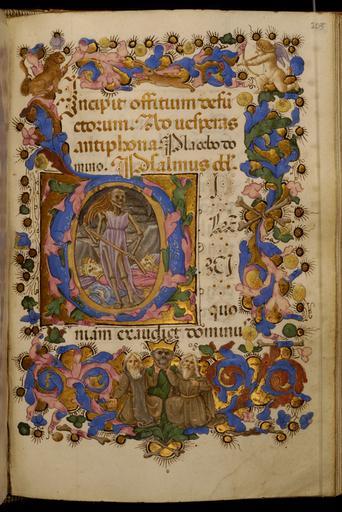 Incipit offitium defu
ctorum. Ad vesperas
antiphona. Placebo do
mino. Psalmus
quo
niam exaudiet dominus